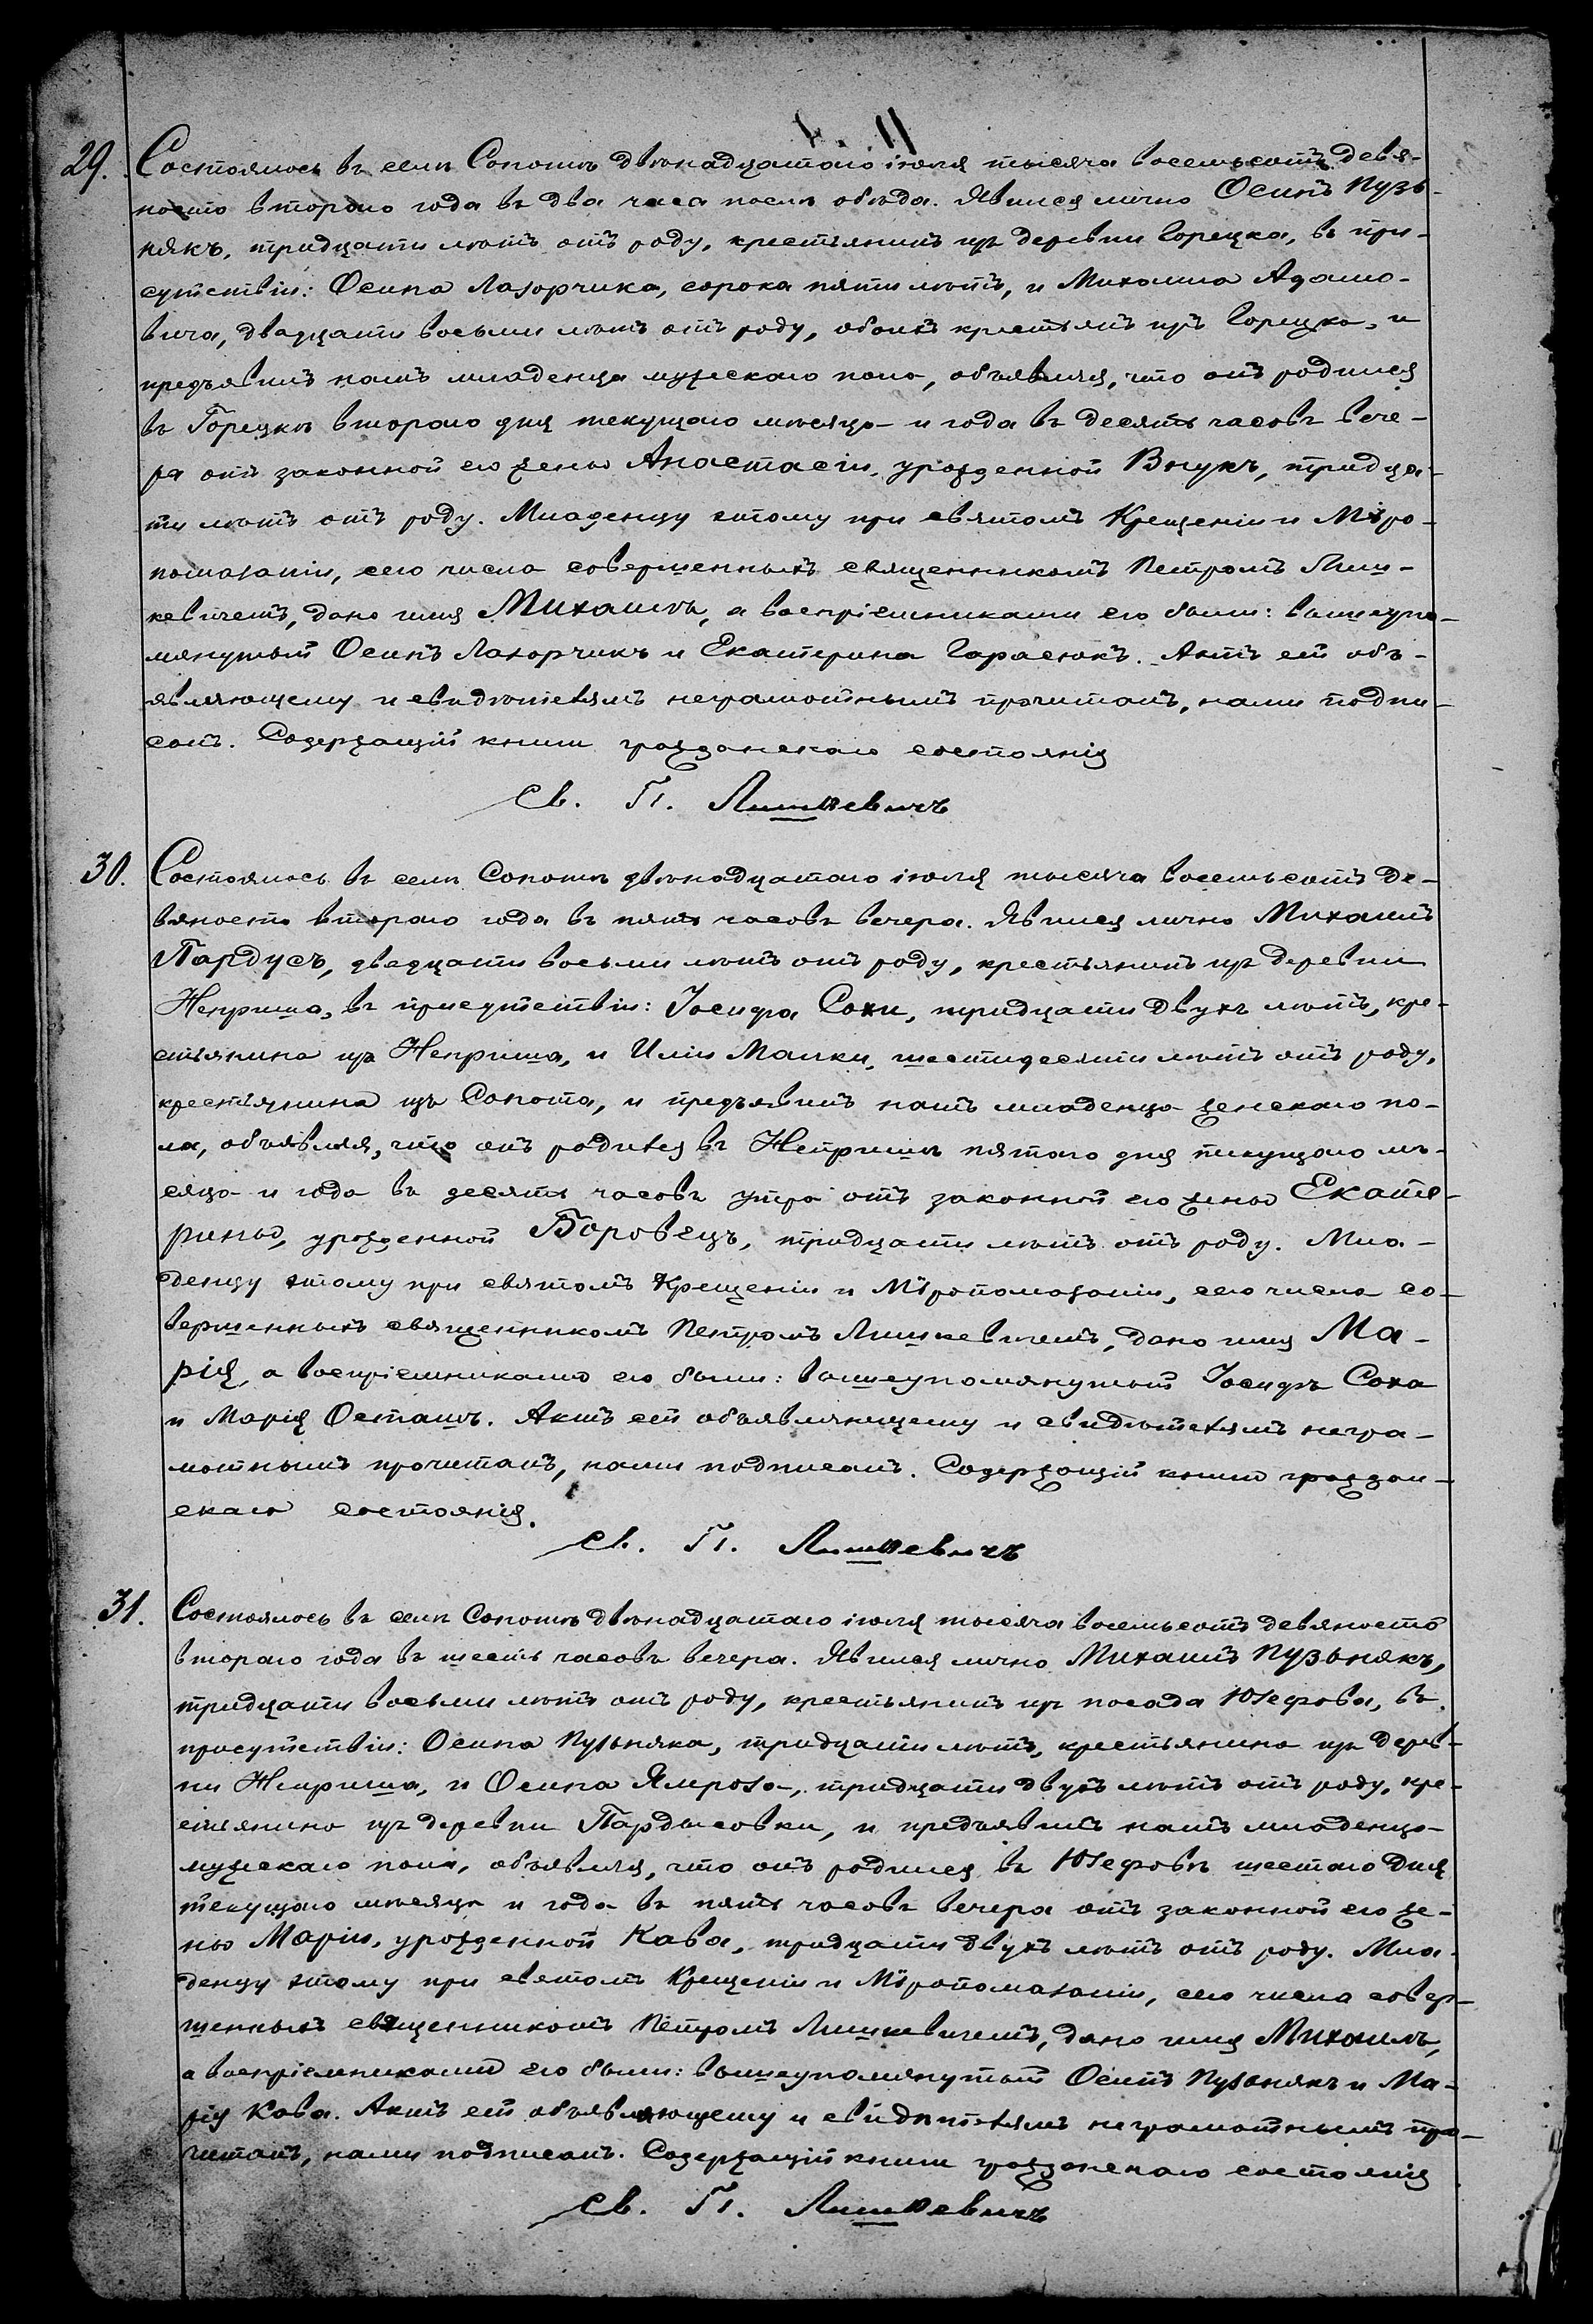 29. Состоялось въ селѣ Сопотѣ двѣнадцатаго іюля тысяча восемьсотъ девя-
носто втораго года въ два часа послѣ обѣда. Явился лично Осипъ Пузь-
някъ, тридцати лѣтъ отъ роду, крестьянинъ изъ деревни Горецка, въ при-
сутствіи: Осипа Лазорчика, сорока пяти лѣтъ, и Михаила Адамо-
вича, двадцати восьми лѣтъ отъ роду, обоихъ крестьянъ изъ Горецка, и
предъявилъ намъ младенца мужескаго пола, объявляя, что онъ родился
въ Горецкѣ втораго дня текущаго мѣсяца и года въ десять часовъ вече-
ра отъ законной его жены Анастасіи, урожденной Внукъ, тридца-
ти лѣтъ отъ роду. Младенцу этому при святомъ Крещеніи и Мѵро-
помазаніи, сего числа совершенныхъ священникомъ Петромъ Лиш-
кевичемъ, дано имя Михаилъ, а воспріемниками его были: вышеупо-
мянутый Осипъ Лазорчикъ и Екатерина Гарасюкъ. Актъ сей объ-
являющему и свидѣтелямъ неграмотнымъ прочитанъ, нами подпи-
санъ. Содержащій книги гражданскаго состоянія
Св. П. Лишкевичъ
30. Состоялось въ селѣ Сопотѣ двѣнадцатаго іюля тысяча восемьсотъ де-
вяносто втораго года въ пять часовъ вечера. Явился лично Михаилъ
Пардусъ, двадцати восьми лѣтъ отъ роду, крестьянинъ изъ деревни
Неприша, въ присутствіи: Іосифа Сохи, тридцати двухъ лѣтъ, кре-
стьянина изъ Неприша, и Иліи Малки, шестидесяти лѣтъ отъ роду,
крестьянина изъ Сопота, и предъявилъ намъ младенца женскаго по-
ла, объявляя, что онъ родился въ Непришѣ пятаго дня текущаго мѣ-
сяца и года въ десять часовъ утра отъ законной его жены Екате-
рины, урожденной Боровецъ, тридцати лѣтъ отъ роду. Мла-
денцу этому при святомъ Крещеніи и Мѵропомазаніи, сего числа со-
вершенныхъ священникомъ Петромъ Лишкевичемъ, дано имя Ма-
рія, а воспріемниками его были: вышеупомянутый Іосифъ Соха
и Марія Осташъ. Актъ сей объявляющему и свидѣтелямъ негра-
мотнымъ прочитанъ, нами подписанъ. Содержащій книги граждан-
скаго состоянія.
Св. П. Лишкевичъ
31. Состоялось въ селѣ Сопотѣ двѣнадцатаго іюля тысяча восемьсотъ девяносто
втораго года въ шесть часовъ вечера. Явился лично Михаилъ Пузьнякъ,
тридцати восьми лѣтъ отъ роду, крестьянинъ изъ посада Юзефова, въ
присутствіи: Осипа Пузьняка, тридцати лѣтъ, крестьянина изъ дерев-
ни Неприша, и Осипа Ямроза, тридцати двухъ лѣтъ отъ роду, кре-
стьянина изъ деревни Пардысовки, и предъявилъ намъ младенца
мужескаго пола, объявляя, что онъ родился въ Юзефовѣ шестаго дня
текущаго мѣсяца и года въ пять часовъ вечера отъ законной его же-
ны Маріи, урожденной Кава, тридцати двухъ лѣтъ отъ роду. Мла-
денцу этому при святомъ Крещеніи и Мѵропомазаніи, сего числа совер-
шенныхъ священникомъ Петромъ Лишкевичемъ, дано имя Михаилъ,
а воспріемниками его были: вышеупомянутый Осипъ Пузьнякъ и Ма-
рія Кава. Актъ сей объявляющему и свидѣтелямъ неграмотнымъ про-
читанъ, нами подписанъ. Содержащій книги гражданскаго состоянія
Св. П. Лишкевичъ